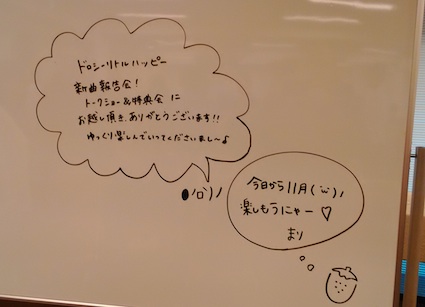 ドロシーリトルハッピー
新曲報告会!
トークショー&特典会 に
お越し頂き、ありがとうございます!!
ゆっくり楽しんでいってくださいまし〜♪
今日から11月(¨)ノ
楽しもうにゃー♡
まり